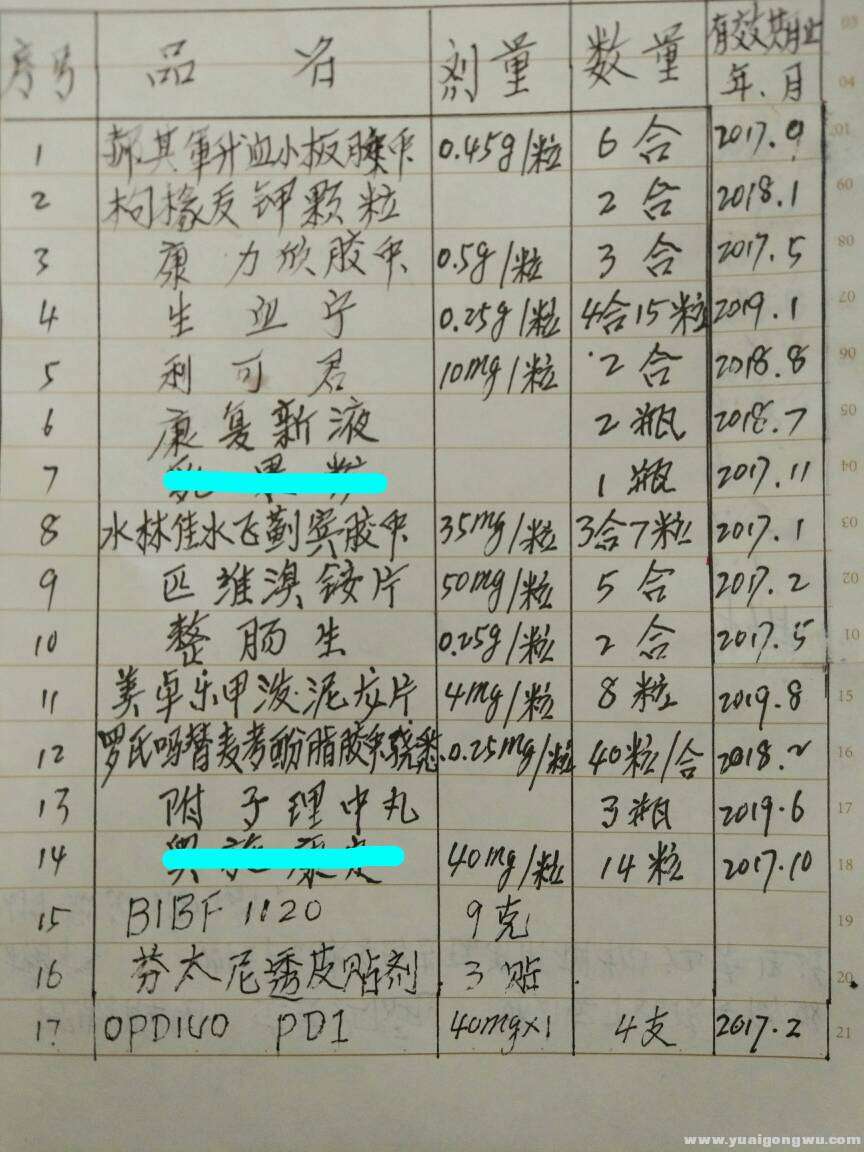 序号 品名 剂量 数量 有效期止 年.月
1 郝其军升血小板胶囊 0.45g/粒 6合 2017.9
2 枸橼酸钾颗粒 2合 2018.1
3 康力欣胶囊 0.5g/粒 3合 2017.5
4 生血宁 0.25g/粒 4合15粒 2019.1
5 利可君 10mg/粒 2合 2018.8
6 康复新液 2瓶 2018.7
7 1瓶 2017.11
8 水林佳水飞蓟宾胶囊 35mg/粒 3合7粒 2017.1
9 匹维溴铵片 50mg/粒 5合 2017.2
10 整肠生 0.25g/粒 2合 2017.5
11 美卓乐甲泼泥龙片 4mg/粒 8粒 2019.8
12 罗氏吗替麦考酚脂胶囊骁悉 0.25mg/粒 40粒/合 2018.2
13 附子理中丸 3瓶 2019.6
14 40mg/粒 14粒 2017.10
15 BIBF 1120 9克
16 芬太尼透皮贴剂 3贴
17 OPDIVO PD1 40mg×1 4支 2017.2
www.yuaigongwu.com